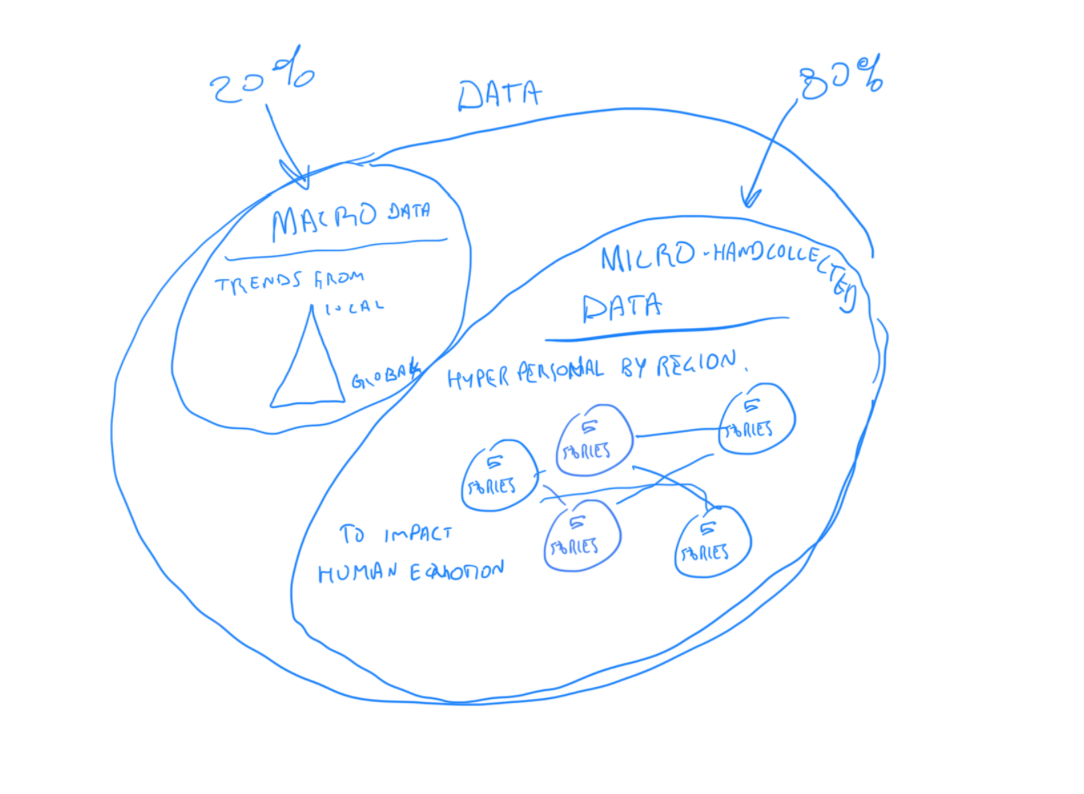 20%
DATA
80%
MACRO DATA
TRENDS FROM
LOCAL
GLOBAL
MICRO-HANDCOLLECTED
DATA
HYPER PERSONAL BY REGION.
5
STORIES
5
STORIES
5
STORIES
5
STORIES
5
STORIES
TO IMPACT
HUMAN EQUATION